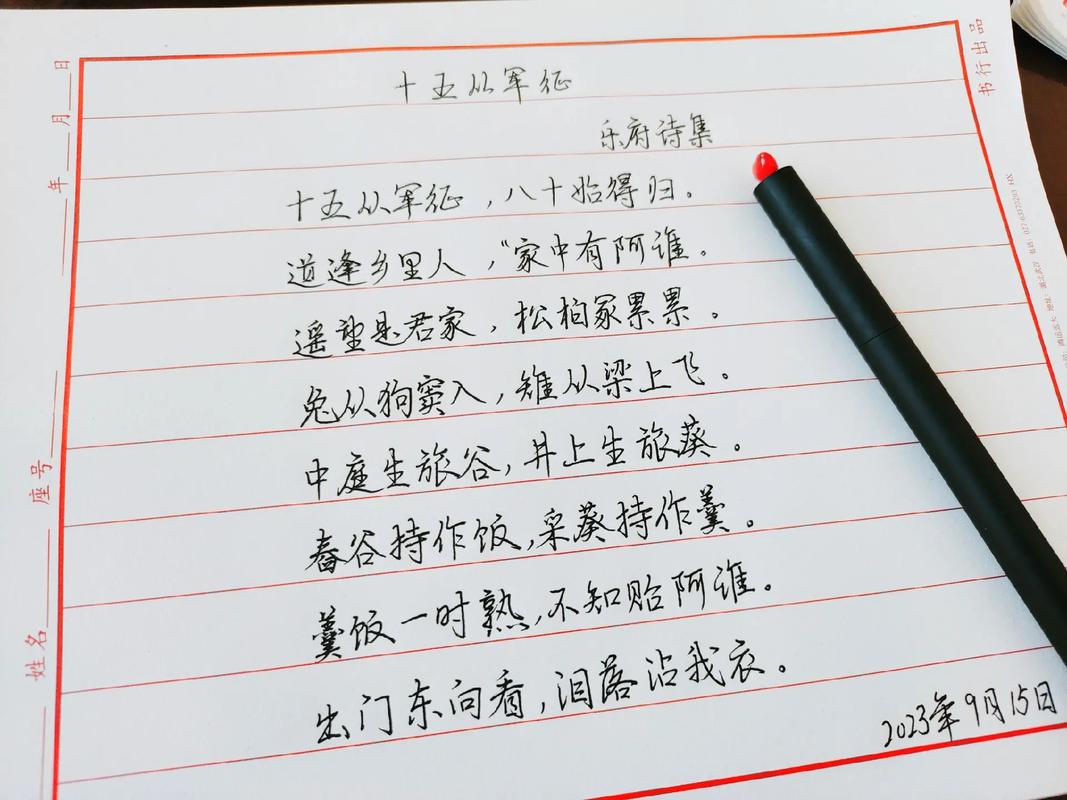 十五从军征
乐府诗集
十五从军征，八十始得归。
道逢乡里人，“家中有阿谁。
遥望是君家，松柏冢累累。
兔从狗窦入，雉从梁上飞。
中庭生旅谷，井上生旅葵。
舂谷持作饭，采葵持作羹。
羹饭一时熟，不知贻阿谁。
出门东向看，泪落沾我衣。
2023年9月15日
年 月 日
座号
姓名
书行出品